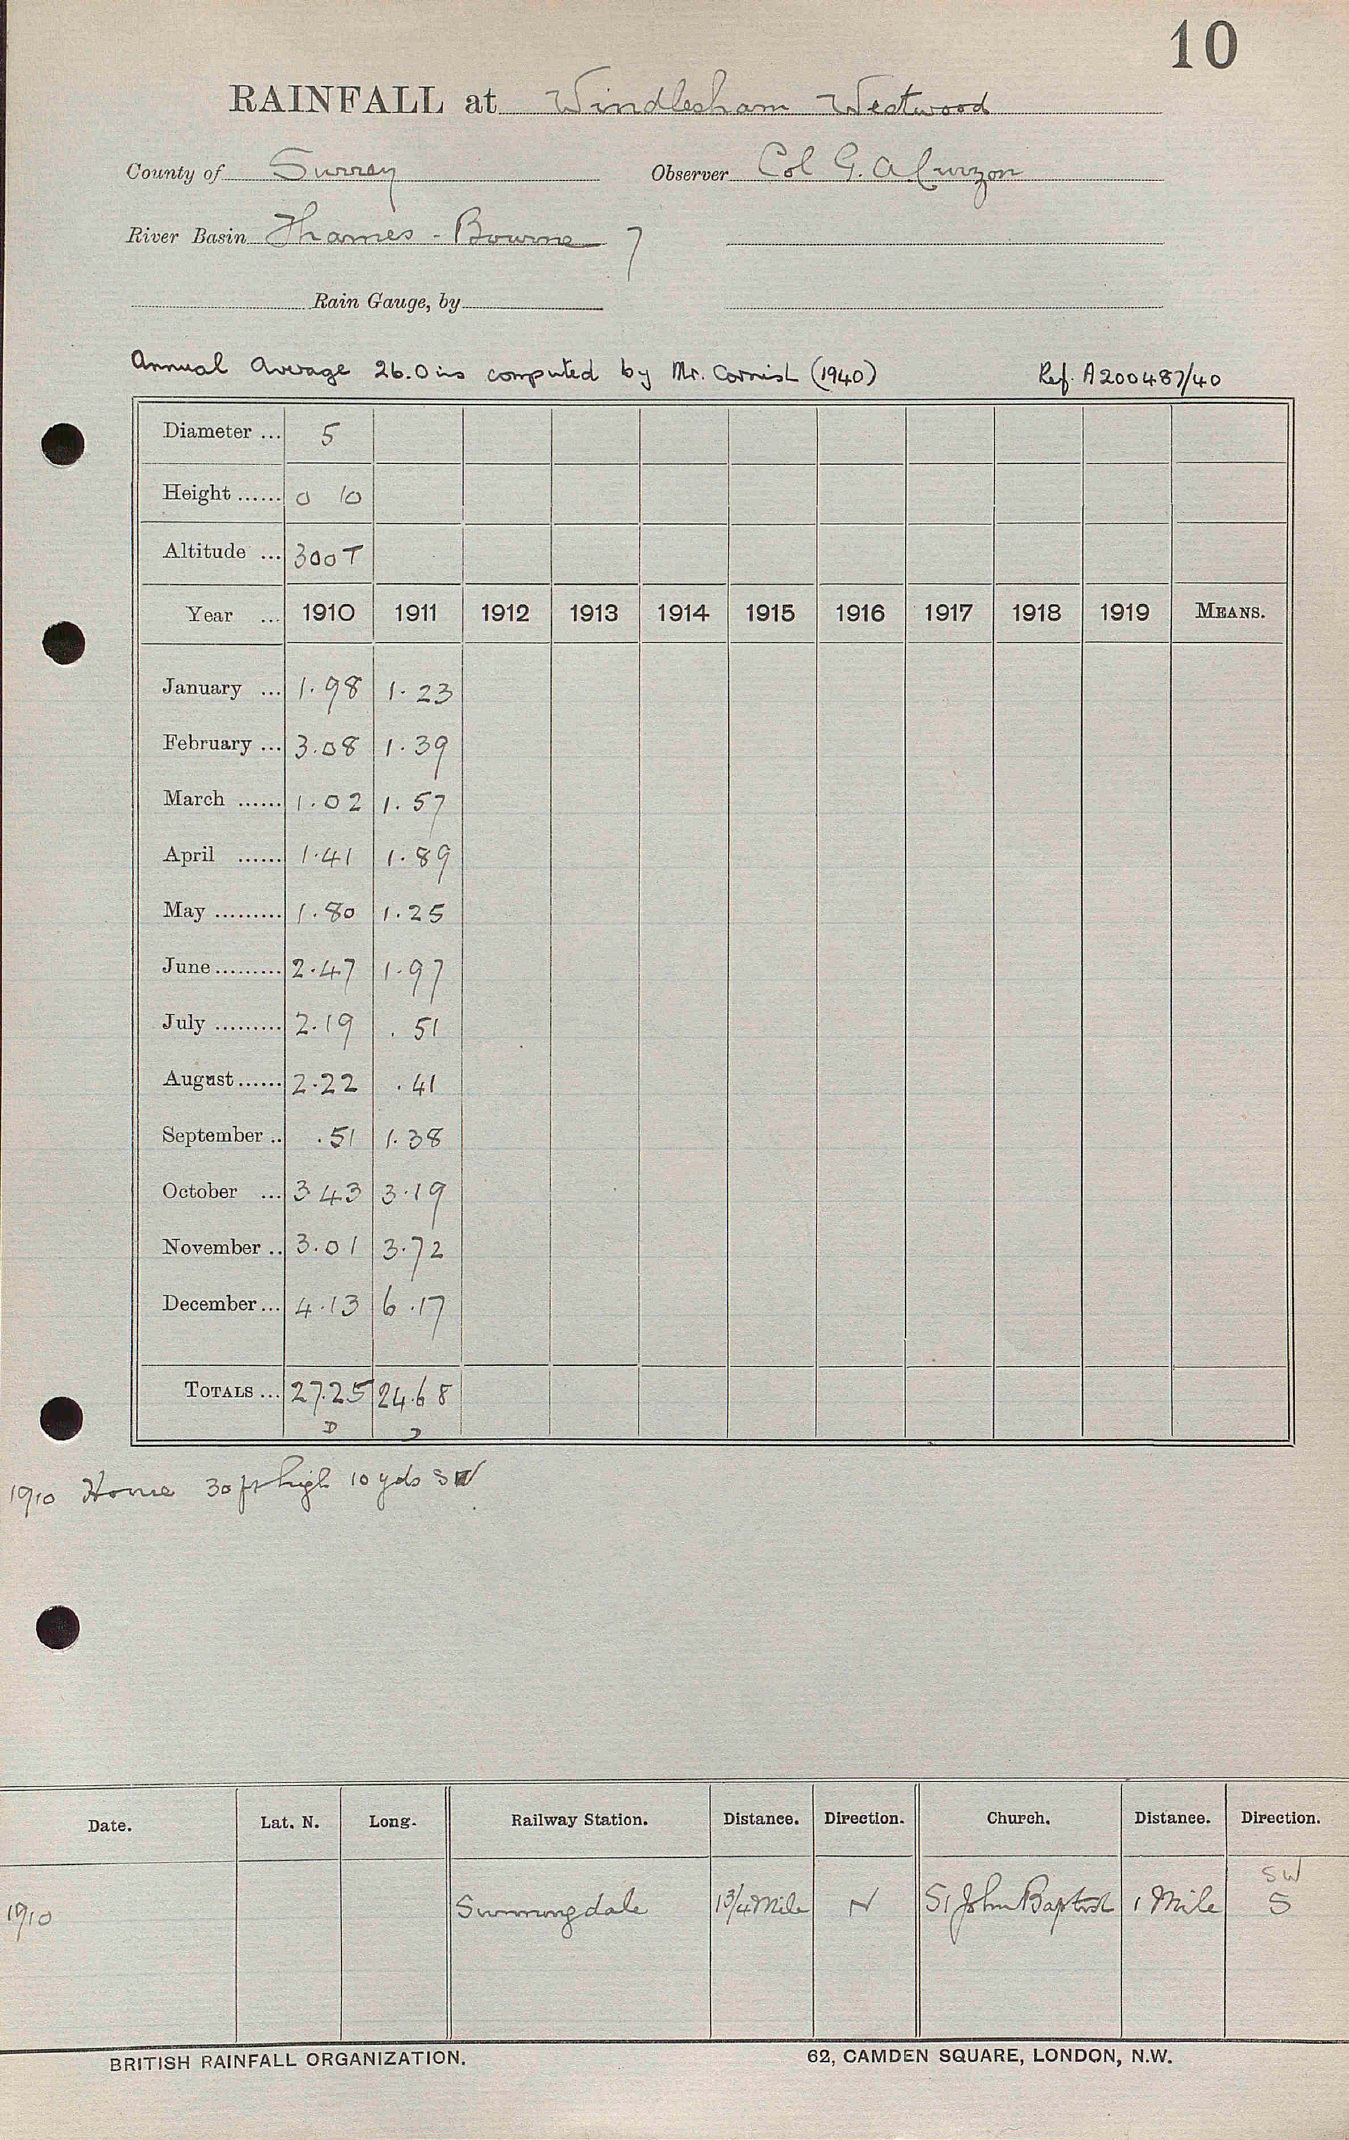 10
RAINFALL at Windlesham Westwood
County of Surrey Observer Col G. A. Curzon
River Basin Thames - Bourne 7
Rain Gauge, by
Annual Average 26.0 ins computed by Mr. Cornish (1940) Ref. A200487/40
Diameter ... 5
Height ...... 0 10
Altitude ... 300 T
Year ... 1910 1911 1912 1913 1914 1915 1916 1917 1918 1919 MEANS.
January ... 1.98 1.23
February ... 3.08 1.39
March ...... 1.02 1.57
April ...... 1.41 1.89
May ......... 1.80 1.25
June ......... 2.47 1.97
July ......... 2.19 .51
August ...... 2.22 .41
September .. .51 1.38
October ... 3 43 3.19
November .. 3.01 3.72
December ... 4.13 6.17
TOTALS ... 27.25 24.68
D D
1910 House 30 ft high 10 yds SW
Date. Lat. N. Long. Railway Station. Distance. Direction. Church. Distance. Direction.
SW
1910 Sunningdale 1 3/4 Mile N St John Baptist 1 Mile S
BRITISH RAINFALL ORGANIZATION. 62, CAMDEN SQUARE, LONDON, N.W.